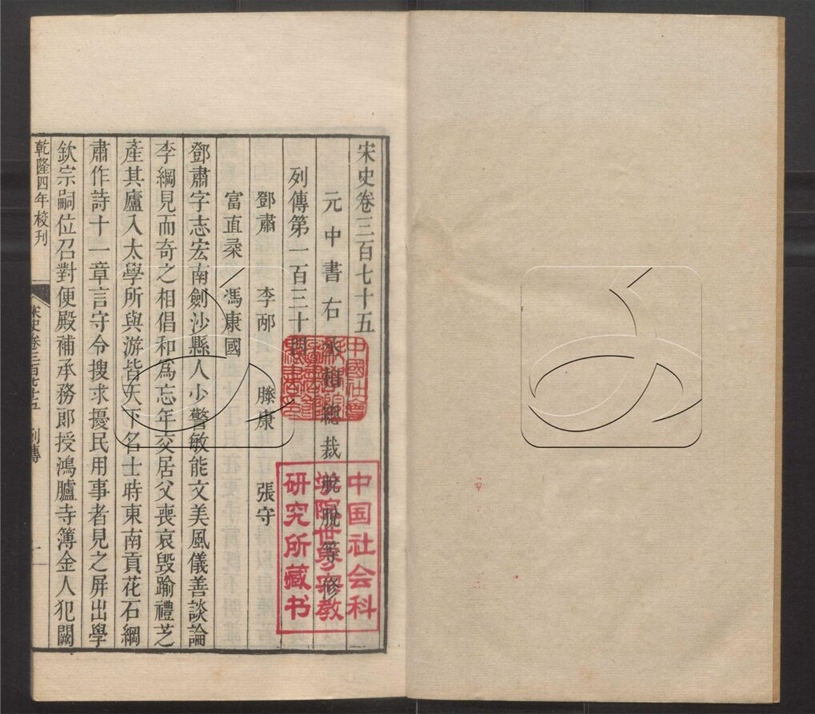 宋史卷三百七十五
元中書右丞相總裁脫脫等修
列傳第一百三十四
鄧肅 李邴 滕康 張守
富直柔 馮康國
鄧肅字志宏南劍沙縣人少警敏能文美風儀善談論
李綱見而奇之相倡和爲忘年交居父喪哀毀踰禮芝
產其廬入太學所與游皆天下名士時東南貢花石綱
肅作詩十一章言守令搜求擾民用事者見之屏出學
欽宗嗣位召對便殿補承務郎授鴻臚寺簿金人犯闕
乾隆四年校刊
宋史卷三百七十五 列傳 一
中国社会科
学院世界宗教
研究所藏书